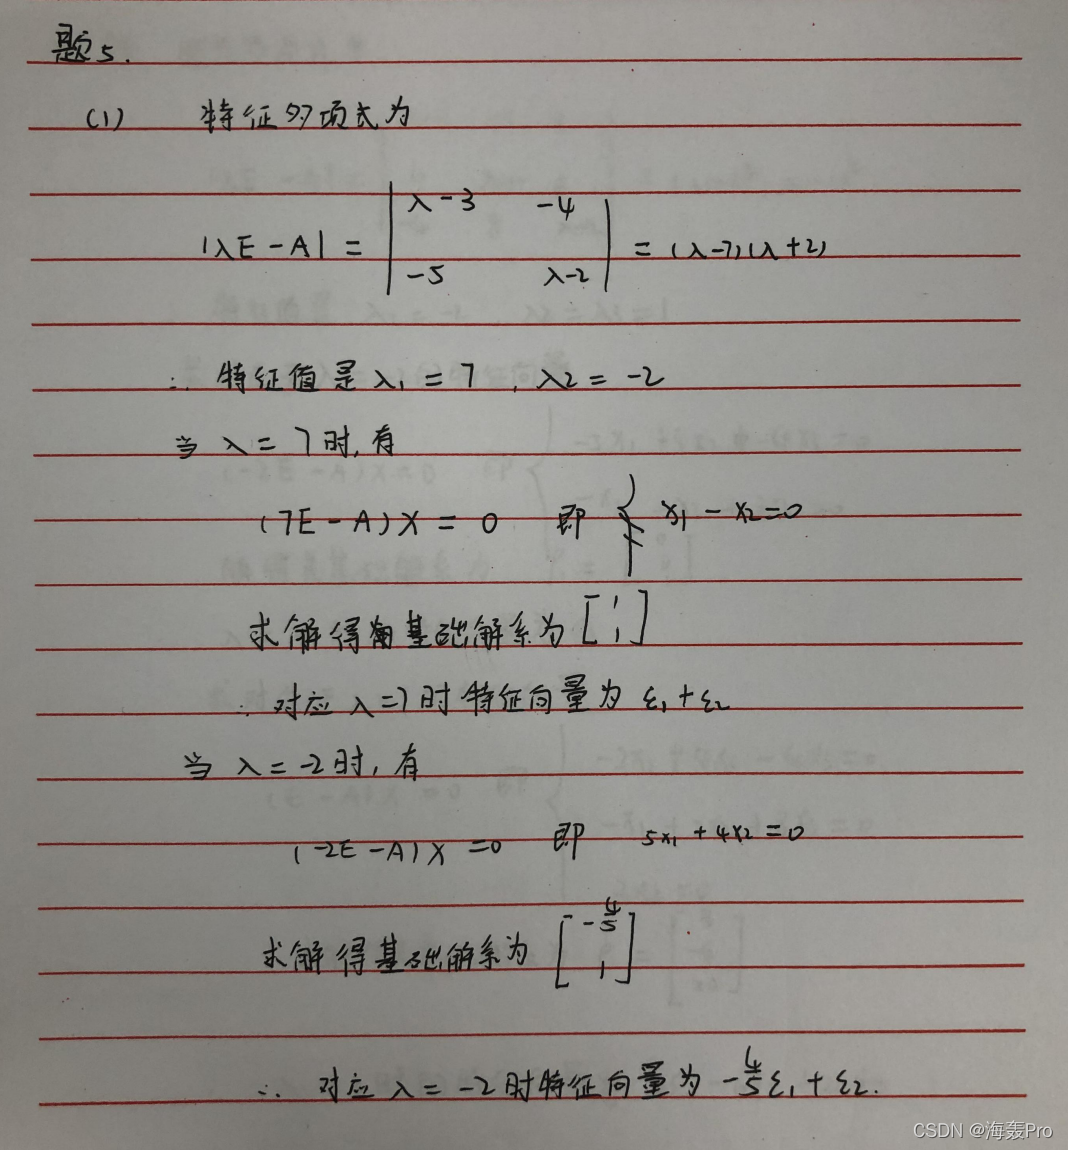 题5.
(1) 特征多项式为
|λE-A| = | λ-3 -4 | = (λ-7)(λ+2)
| -5 λ-2 |
∴ 特征值是 λ1 = 7 , λ2 = -2
当 λ = 7 时, 有
(7E-A)X = 0 即 { x1 - x2 = 0
求解得基础解系为 [ 1
1 ]
∴ 对应 λ=7 时特征向量为 ε1+ε2
当 λ = -2 时, 有
(-2E-A)X = 0 即 5x1 + 4x2 = 0
求解得基础解系为 [ -4/5
1 ]
∴ 对应 λ = -2 时特征向量为 -4/5 ε1 + ε2.
CSDN @海轰Pro